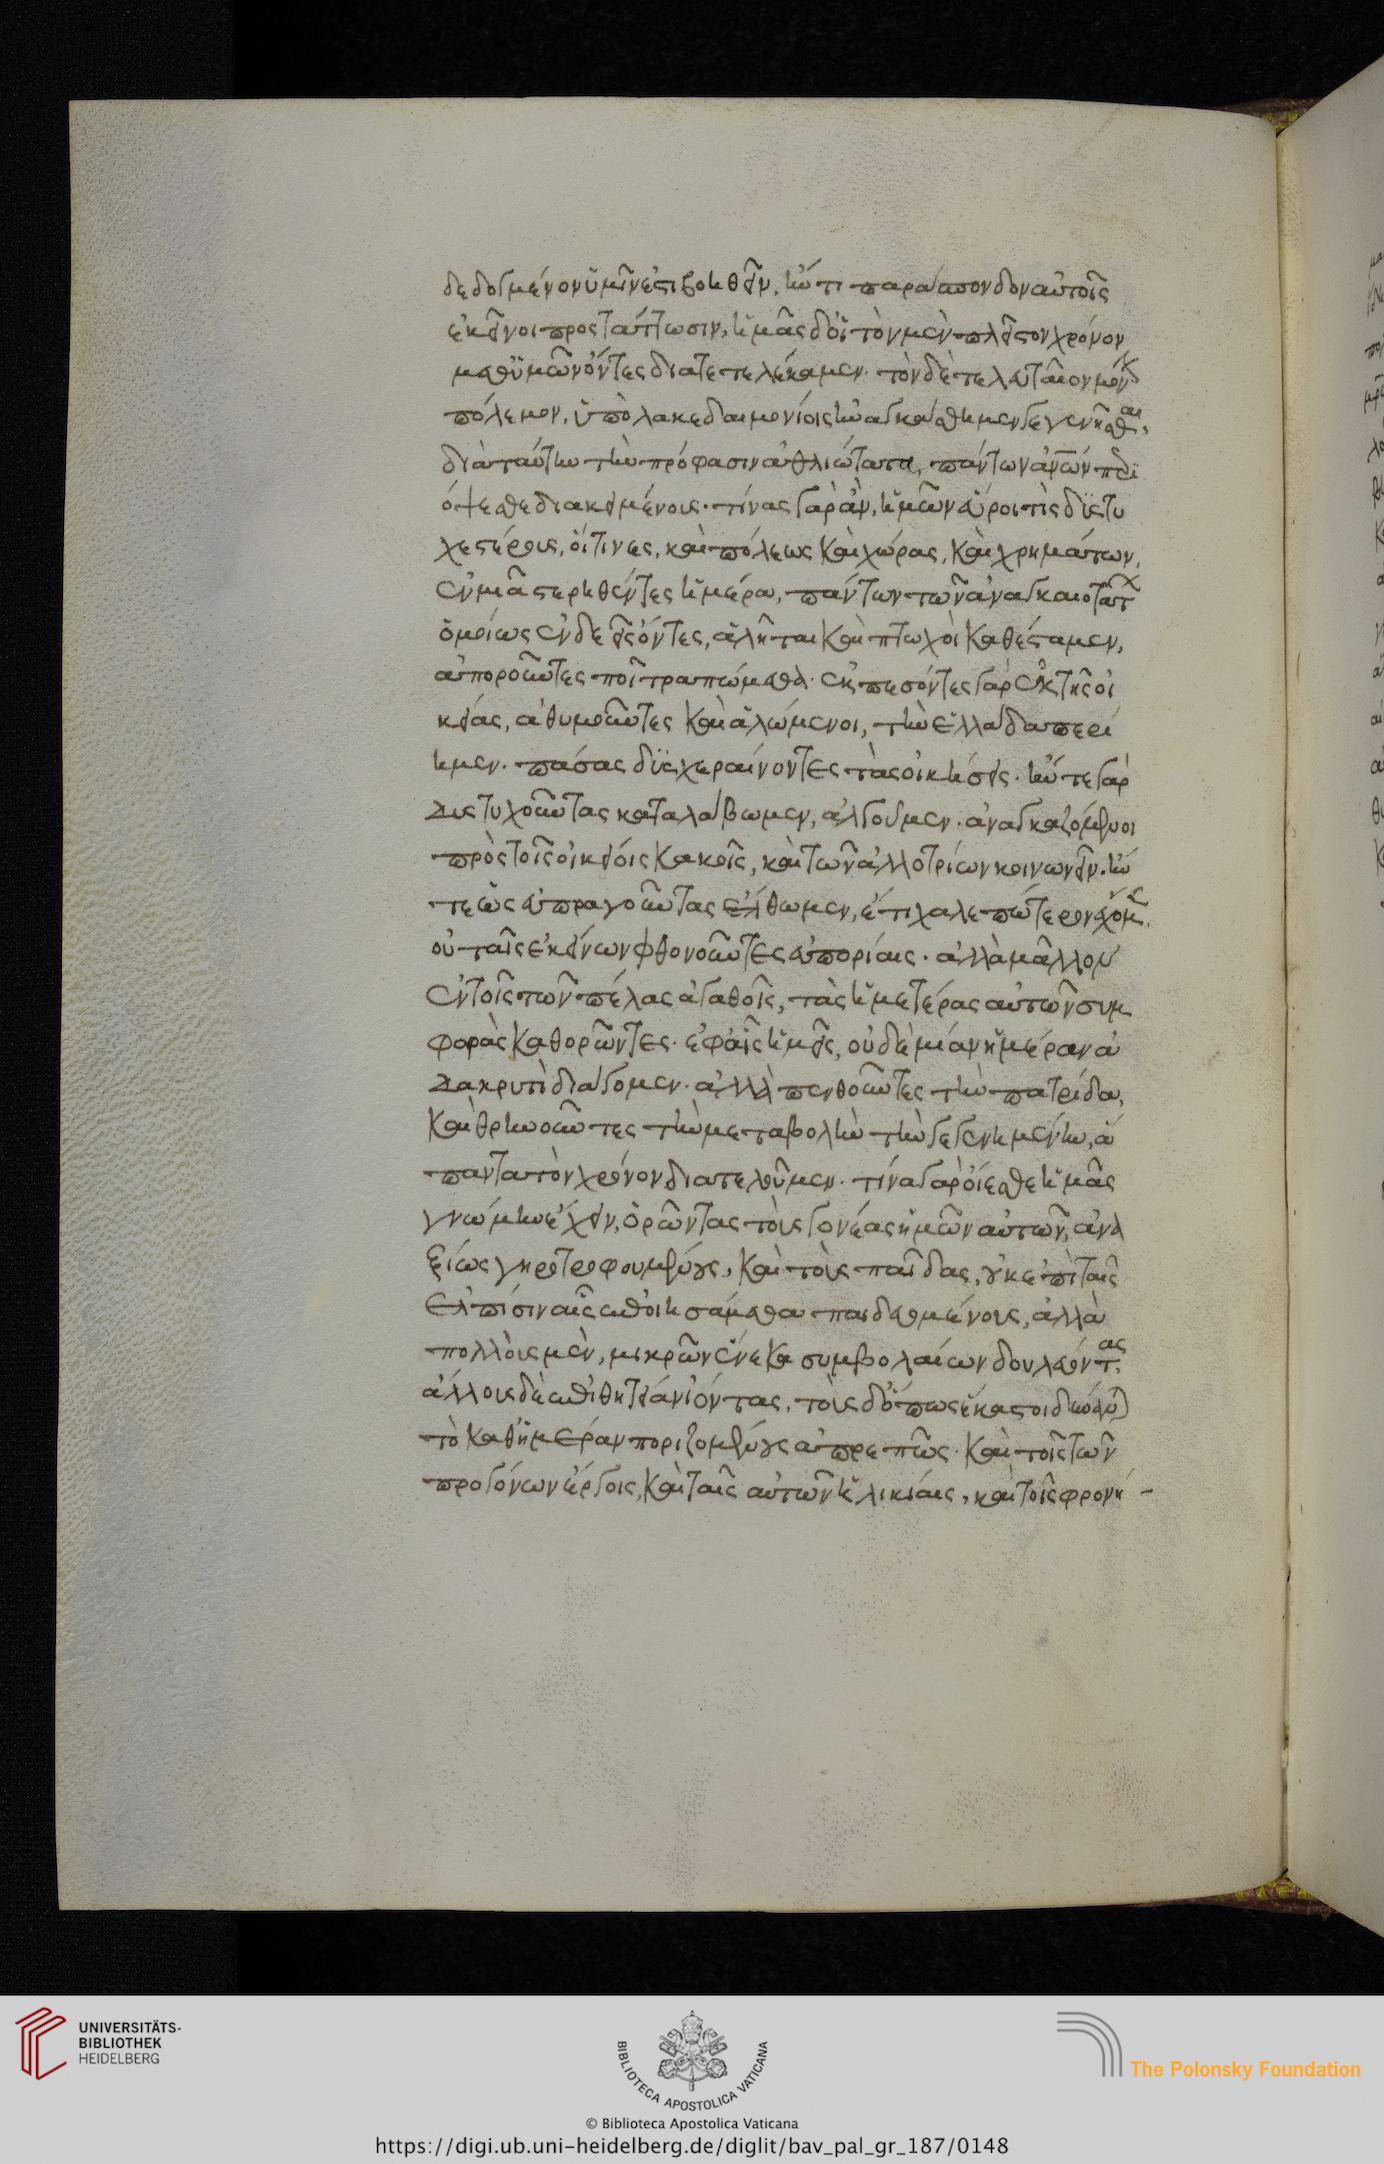 δεδογμένον ὑμῖν ἐστι βοηθεῖν, ἤν τι παράσπονδον αὐτοῖς
ἐκεῖνοι προςτάττωσιν, ἡμᾶς δ' οἳ τὸν μὲν πλεῖστον χρόνον
μεθ' ὑμῶν ὄντες διατετελέκαμεν. τὸν δὲ τελευταῖον μόνον
πόλεμον, ὑπὸ λακεδαιμονίοις ἠναγκάσθημεν γενέσθαι,
διὰ ταύτην τὴν πρόφασιν ἀθλιώτατα, πάντων ἀνθρώπων περιϊ
όψεσθε διακειμένους. τίνας γὰρ ἂν, ἡμῶν εὕροι τὶς δυστυ
χεστέρους, οἵτινες, καὶ πόλεως καὶ χώρας, καὶ χρημάτων,
ἐν μιᾷ στερηθέντες ἡμέρα, πάντων τῶν ἀναγκαιοτάτων
ὁμοίως ἐνδεεῖς ὄντες, ἀλῆται καὶ πτωχοὶ καθέσταμεν,
ἀποροῦντες ποῖ τραπώμεθα. ἐκπεσόντες γὰρ ἐκ τῆς οἰ
κείας, ἀθυμοῦντες καὶ ἀλώμενοι, τὴν ἑλλάδα περιί
ημεν. πάσας δυσχεραίνοντες τὰς οἰκήσεις. ἤν τε γὰρ
δυςτυχοῦντας καταλάβωμεν, ἀλγοῦμεν. ἀναγκαζόμενοι
πρὸς τοῖς οἰκείοις κακοῖς, καὶ τῶν ἀλλοτρίων κοινωνεῖν. ἤν
τε ὡς εὐπραγοῦντας ἔλθωμεν, ἔτι χαλεπώτερον ἔχομεν.
οὐ ταῖς ἐκείνων φθονοῦντες εὐπορίαις. ἀλλὰ μᾶλλον
ἐν τοῖς τῶν πέλας ἀγαθοῖς, τὰς ἡμετέρας αὐτῶν συμ
φορὰς καθορῶντες. ἐφ' αἷς ἡμεῖς, οὐδὲ μίαν ἡμέραν ἀ
δακρυτὶ διάγομεν. ἀλλὰ πενθοῦντες τὴν πατρίδα,
καὶ θρηνοῦντες τὴν μεταβολὴν τὴν γεγενημένην, ἅ
παντα τὸν χρόνον διατελοῦμεν. τίνα γὰρ οἴεσθε ἡμᾶς
γνώμην ἔχειν, ὁρῶντας τοὺς γονέας ἡμῶν αὐτῶν, ἀνα
ξίως γηροτροφουμένους, καὶ τοὺς παῖδας, οὐκ ἐπὶ ταῖς
ἐλπίσιν αἷς ἐποιησάμεθα παιδευομένους, ἀλλὰ
πολλοὺς μὲν, μικρῶν ἕνεκα συμβολαίων δουλεύοντας,
ἄλλους δὲ ἐπὶ θητείαν ἰόντας, τοὺς δ' ὅπως ἕκαστοι δύνανται
τὸ καθ' ἡμέραν ποριζομένους ἀπρεπῶς. καὶ τοῖς τῶν
προγόνων ἔργοις, καὶ ταῖς αὐτῶν ἡλικίαις, καὶ τοῖς φρονή -
UNIVERSITÄTS-
BIBLIOTHEK
HEIDELBERG
BIBLIOTECA APOSTOLICA VATICANA
The Polonsky Foundation
© Biblioteca Apostolica Vaticana
https://digi.ub.uni-heidelberg.de/diglit/bav_pal_gr_187/0148